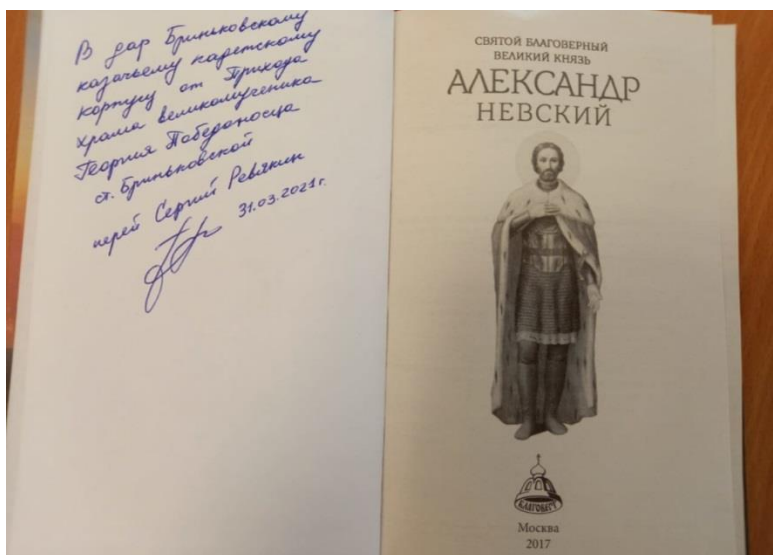 В дар Бриньковскому
казачьему кадетскому
корпусу от Прихода
храма великомученика
Георгия Победоносца
ст. Бриньковской
иерей Сергий Ревякин
31.03.2021г.
СВЯТОЙ БЛАГОВЕРНЫЙ
ВЕЛИКИЙ КНЯЗЬ
АЛЕКСАНДР
НЕВСКИЙ
БЛАГОВЕСТ
Москва
2017